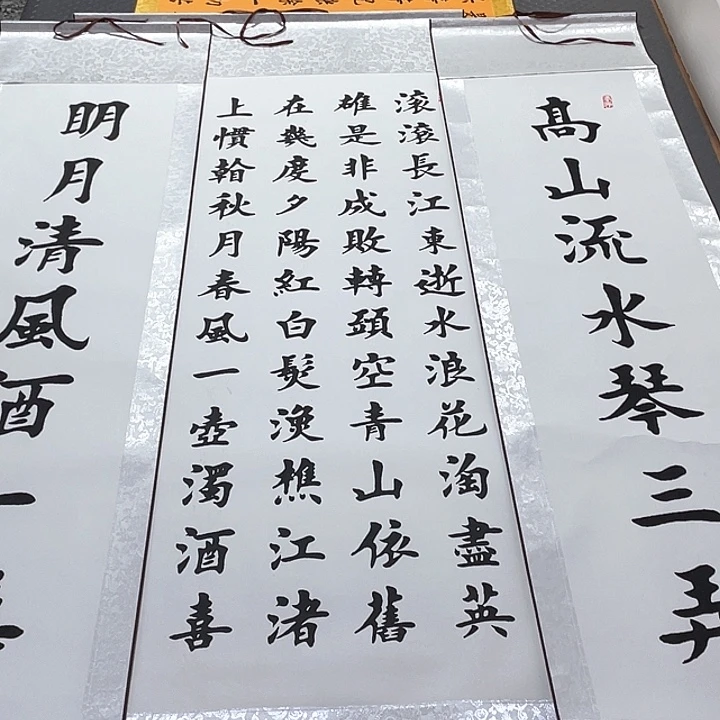 髙山流水琴三弄
滾滾長江東逝水浪花淘盡英
雄是非成敗轉頭空青山依舊
在幾度夕陽紅白髮漁樵江渚
上慣翰秋月春風一壺濁酒喜
明月清風酒一